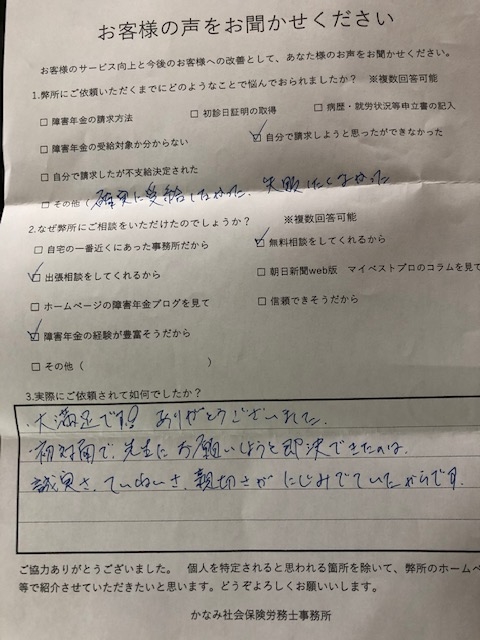 お客様の声をお聞かせください
お客様のサービス向上と今後のお客様への改善として、あなた様のお声をお聞かせください。
1.弊所にご依頼いただくまでにどのようなことで悩んでおられましたか? ※複数回答可能
□ 障害年金の請求方法 □ 初診日証明の取得 □ 病歴・就労状況等申立書の記入
□ 障害年金の受給対象か分からない ☑ 自分で請求しようと思ったができなかった
□ 自分で請求したが不支給決定された
□ その他 ( 確実に受給したかった、失敗したくなかった
2.なぜ弊所にご相談をいただけたのでしょうか? ※複数回答可能
□ 自宅の一番近くにあった事務所だから ☑ 無料相談をしてくれるから
☑ 出張相談をしてくれるから □ 朝日新聞web版 マイベストプロのコラムを見て
□ ホームページの障害年金ブログを見て □ 信頼できそうだから
☑ 障害年金の経験が豊富そうだから
□ その他 ( )
3.実際にご依頼されて如何でしたか?
・大満足です! ありがとうございました。
・初対面で、先生にお願いしようと即決できたのは、
誠実さ、ていねいさ、親切さが にじみでていたからです。
ご協力ありがとうございました。 個人を特定されると思われる箇所を除いて、弊所のホームペ
等で紹介させていただきたいと思います。どうぞよろしくお願いいします。
かなみ社会保険労務士事務所